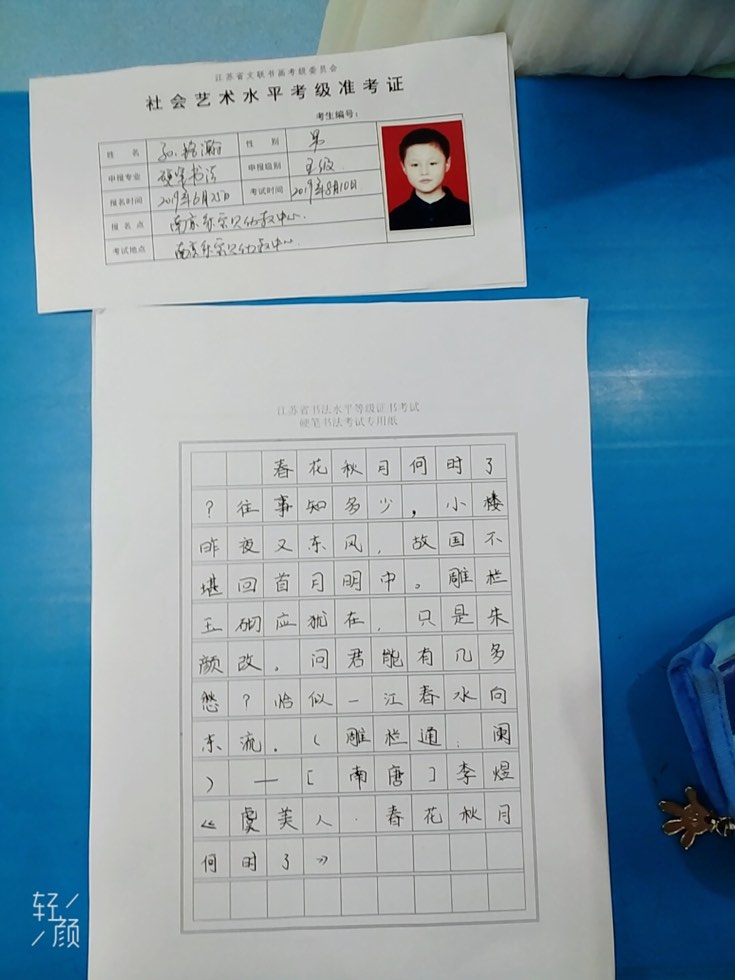 江苏省文联书画考级委员会
社会艺术水平考级准考证
考生编号:
姓名 性别 男
申报专业 硬笔书法 申报级别 五级
报名时间 2019年6月25日 考试时间 2019年8月10日
报名点 南京
考试地点 南京
江苏省书法水平等级证书考试
硬笔书法考试专用纸
春花秋月何时了
?往事知多少,小楼
昨夜又东风,故国不
堪回首月明中。雕栏
玉砌应犹在,只是朱
颜改。问君能有几多
愁?恰似一江春水向
东流。(雕栏通:阑
)—[南唐]李煜
《虞美人·春花秋月
何时了》
轻颜